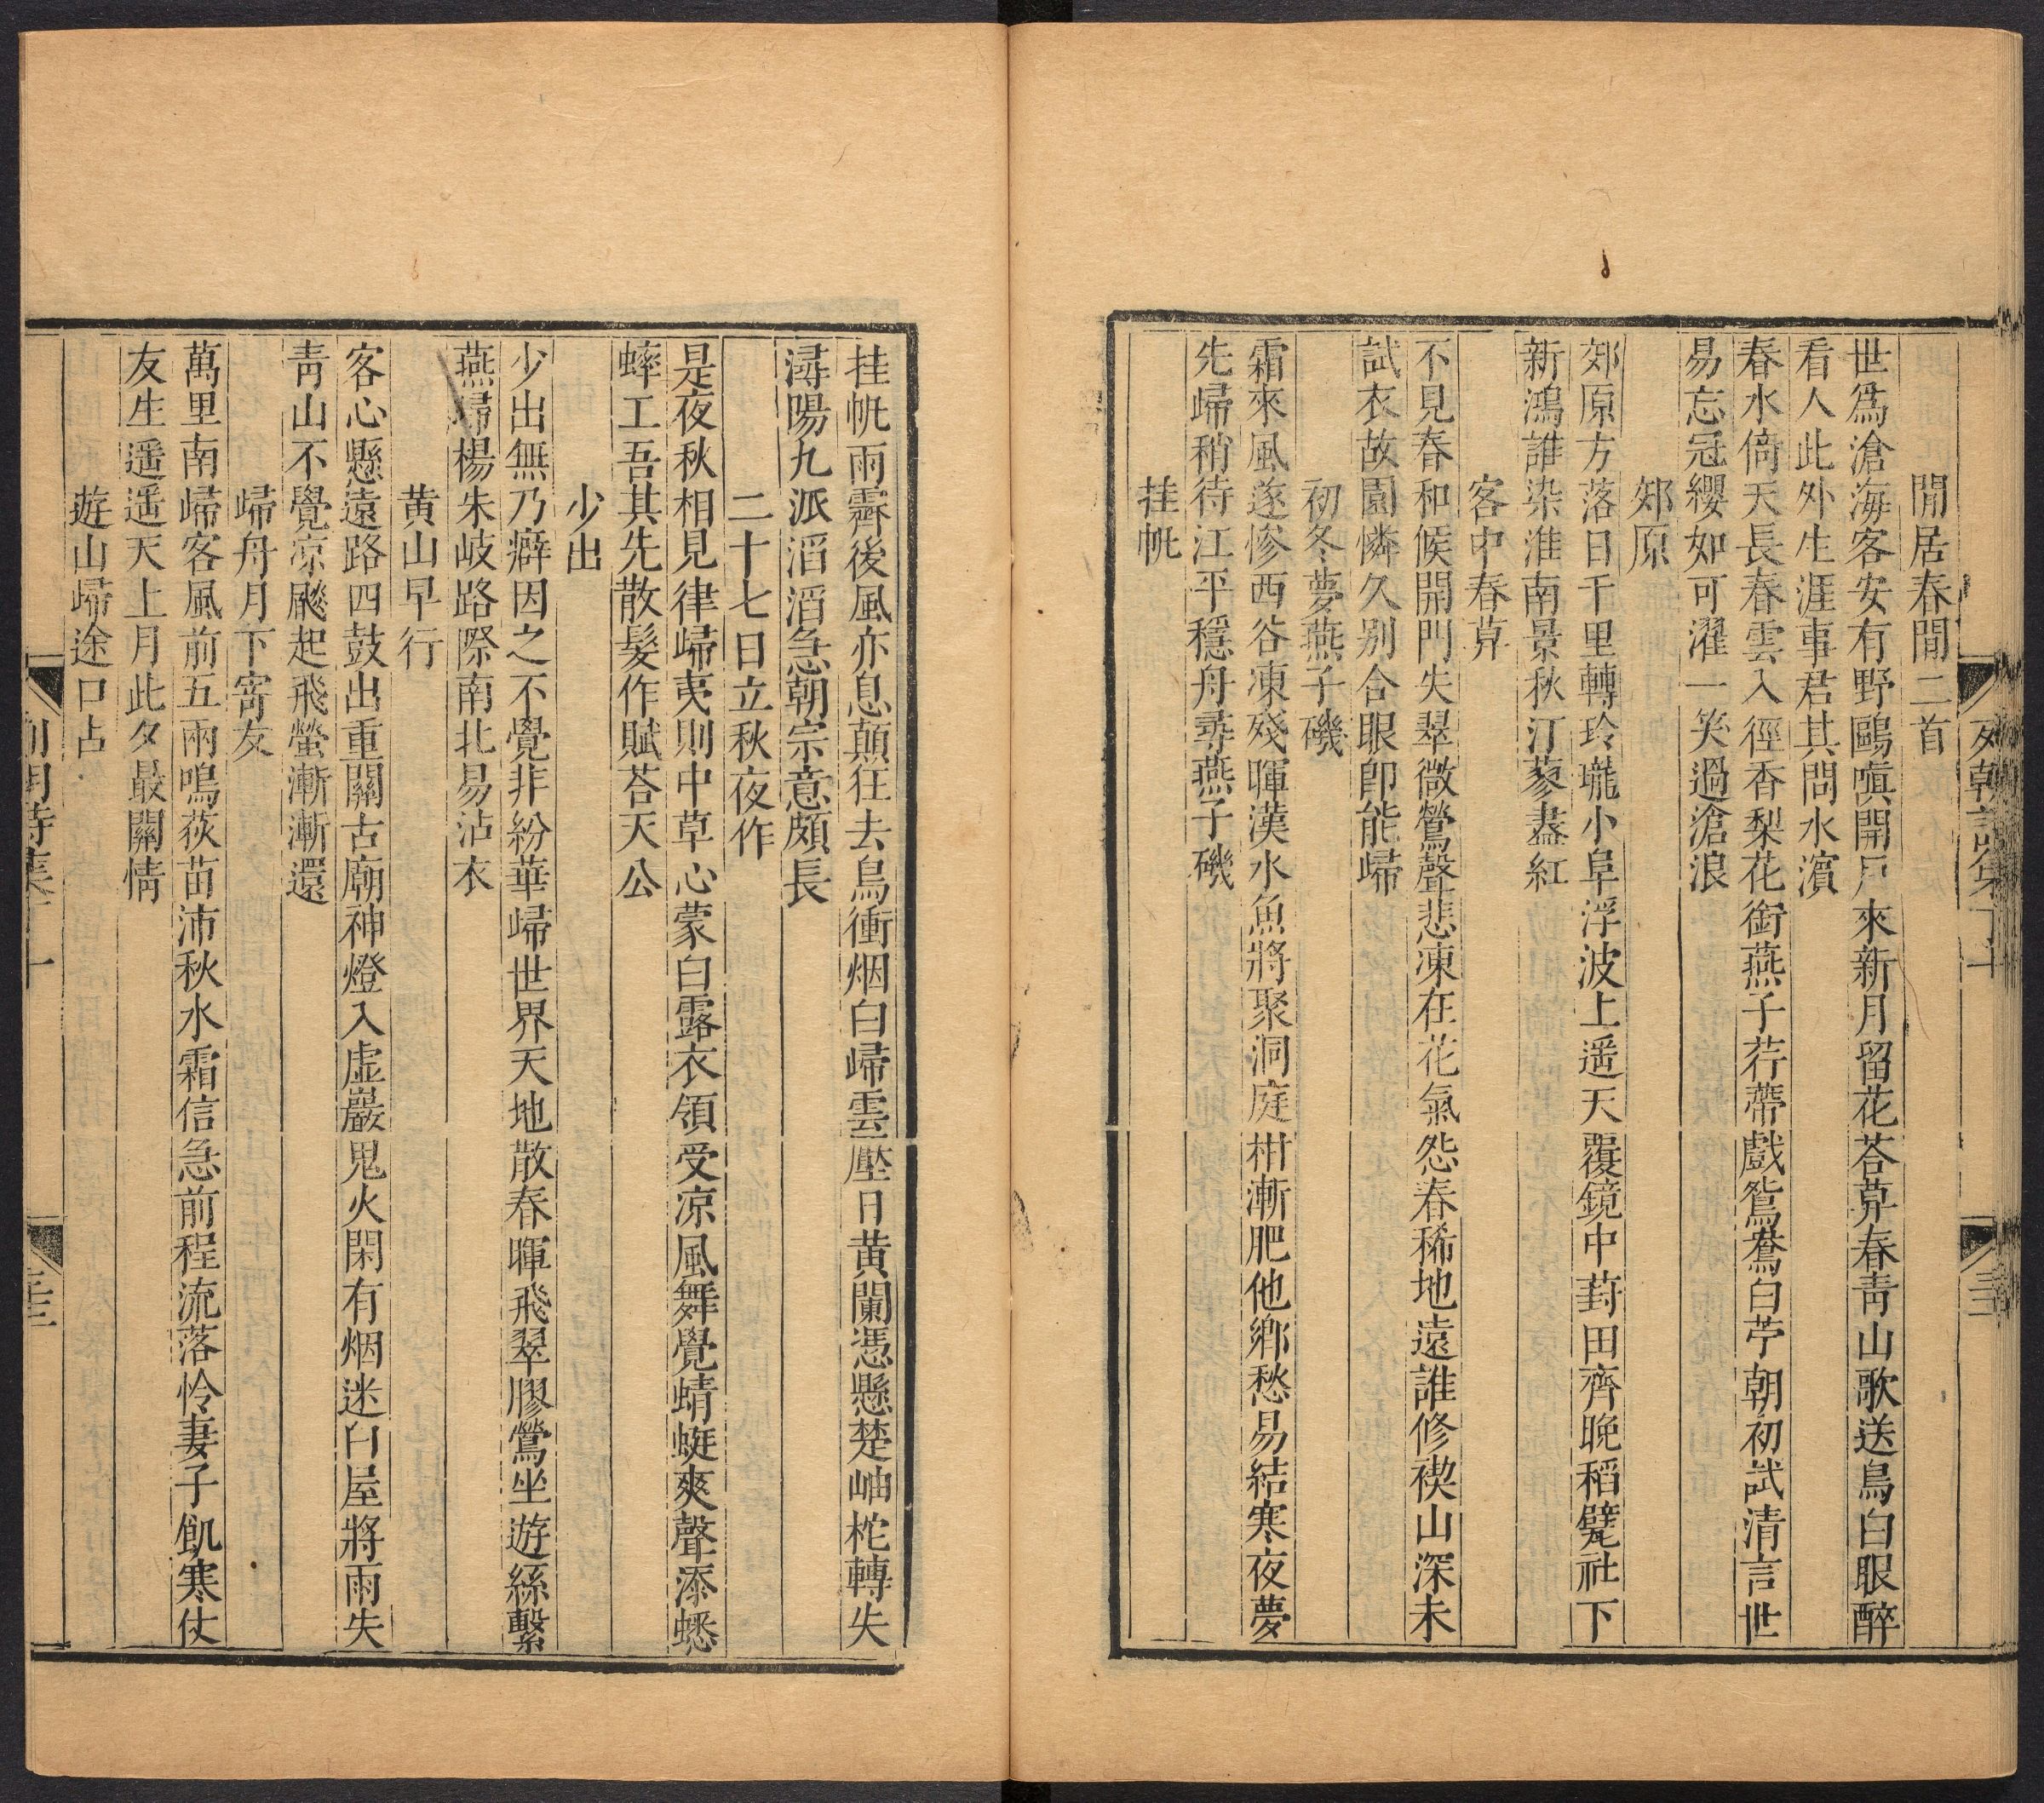 閒居春閒二首
世爲滄海客安有野鷗嗔開戶來新月留花荅莫春靑山歌送鳥白眼醉
看人此外生涯事君其問水濱
春水倚天長春雲入徑香梨花銜燕子荇帶戲鴛鴦白苧朝初試清言世
易忘冠纓如可濯一笑過滄浪
郊原
郊原方落日千里轉玲瓏小阜浮波上遥天覆鏡中葑田齊晚稻甓社下
新鴻誰染淮南景秋汀蓼盡紅
客中春莫
不見春和候開門失翠微鶯聲悲凍在花氣怨春稀地遠誰修禊山深未
試衣故園憐久别合眼卽能歸
初冬夢燕子磯
霜來風遂慘西谷凍殘暉漢水魚將聚洞庭柑漸肥他鄉愁易結寒夜夢
先歸稍待江平穩舟尋燕子磯
挂帆
挂帆雨霽後風亦息顛狂去鳥衝烟白歸雲壓日黄闌憑懸楚岫柁轉失
潯陽九派滔滔急朝宗意頗長
二十七日立秋夜作
是夜秋相見律歸夷則中草心蒙白露衣領受凉風舞覺蜻蜓爽聲添蟋
蟀工吾其先散髮作賦荅天公
少出
少出無乃癖因之不覺非紛華歸世界天地散春暉飛翠膠鶯坐遊絲繫
燕歸楊朱岐路際南北易沾衣
黄山早行
客心懸遠路四鼓出重關古廟神燈入虛巖鬼火閑有烟迷白屋將雨失
靑山不覺凉颷起飛螢漸漸還
歸舟月下寄友
萬里南歸客風前五兩鳴荻苗沛秋水霜信急前程流落怜妻子飢寒仗
友生遥遥天上月此夕最關情
遊山歸途口占